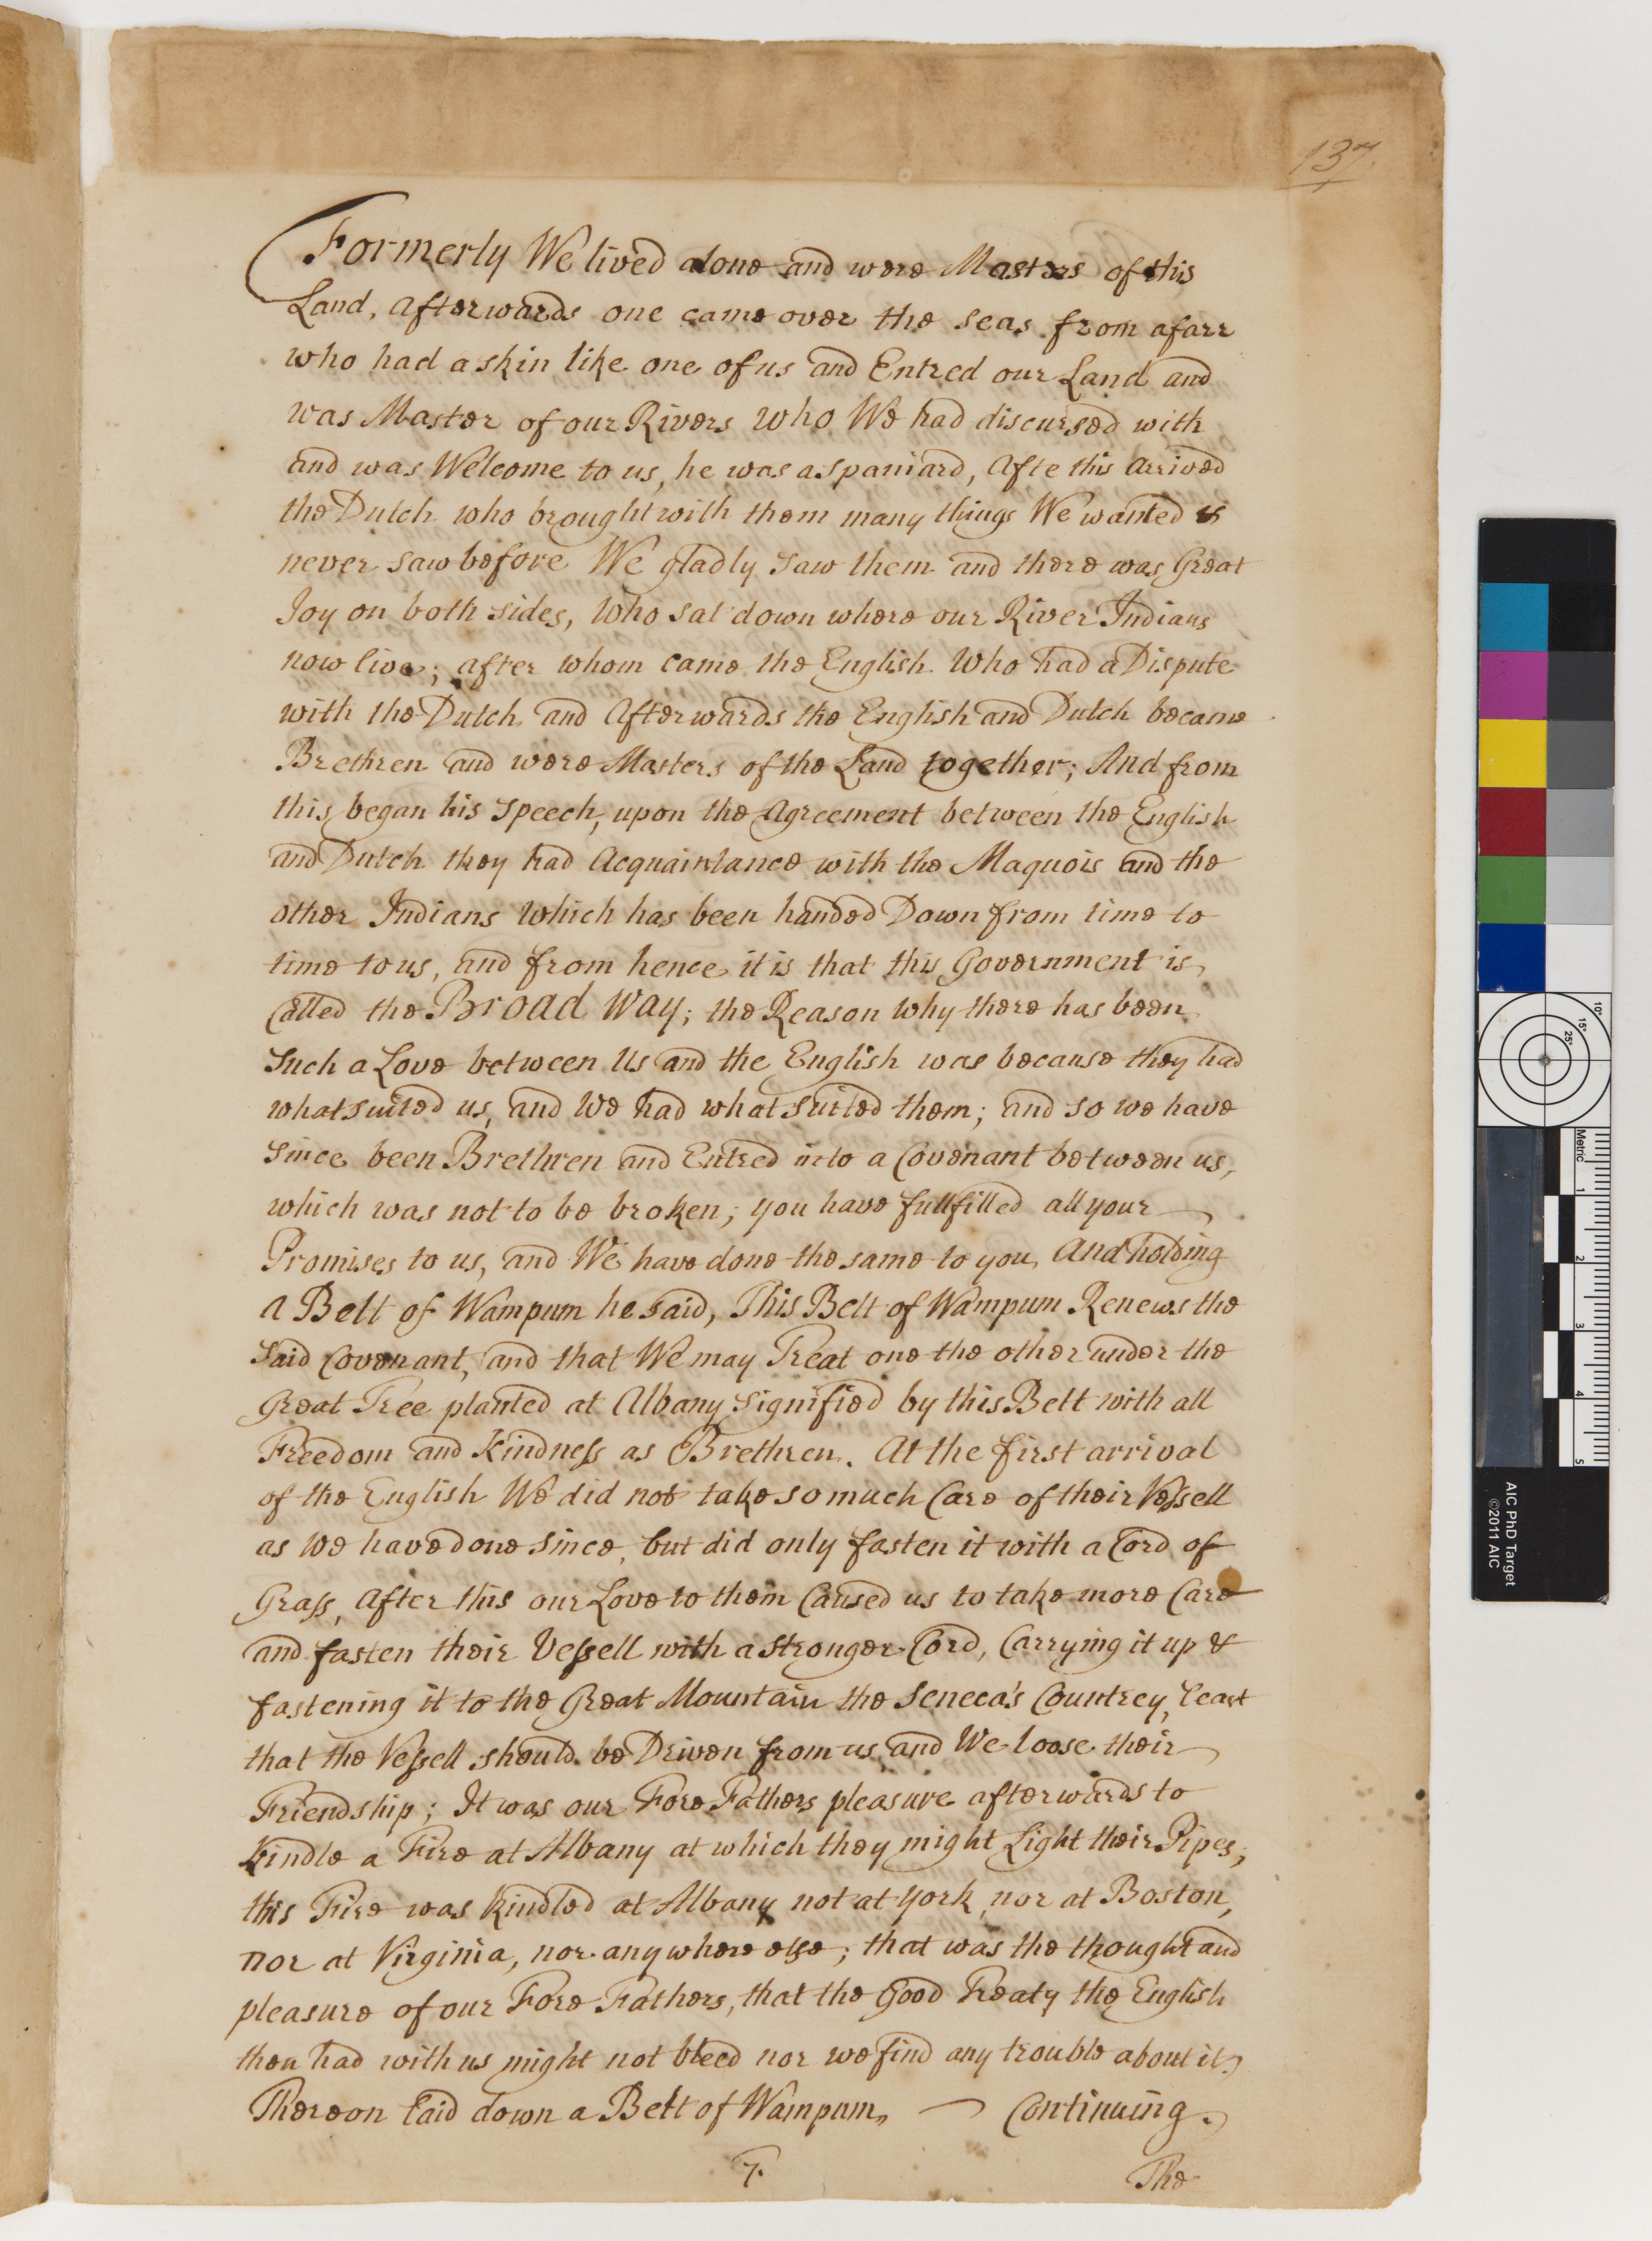 137.
Formerly We lived alone and were Masters of this
Land, Afterwards one came over the seas from afarr
who had a skin like one of us and Entred our Land and
was Master of our Rivers who We had discursed with
and was Welcome to us, he was a Spaniard, Afte this Arrived
the Dutch who brought with them many things We wanted &
never saw before We gladly saw them and there was Great
Joy on both sides, who sat down where our River Indians
now live; after whom came the English who had a Dispute
with the Dutch and Afterwards the English and Dutch became
Brethren and were Masters of the Land together; And from
this began his Speech, upon the Agreement between the English
and Dutch they had Acquaintance with the Maquois and the
other Indians which has been handed Down from time to
time to us, and from hence it is that this Government is
Called the Broad Way; the Reason why there has been
Such a Love between Us and the English was because they had
what suited us, and We had what suited them; and so we have
since been Brethren and Entred into a Covenant between us,
which was not to be broken; you have fullfilled all your
Promises to us, and We have done the same to you, And holding
a Belt of Wampum he said, This Belt of Wampum Renews the
said Covenant, and that We may Treat one the other under the
Great Tree planted at Albany signified by this Belt with all
Freedom and Kindness as Brethren. At the first arrival
of the English We did not take so much Care of their Vessell
as We have done since, but did only fasten it with a Cord of
Grass, After this our Love to them Caused us to take more Care
and fasten their Vessell with a stronger Cord, Carrying it up &
fastening it to the Great Mountain the Seneca's Countrey, least
that the Vessell should be Driven from us, and We loose their
Friendship; It was our Fore Fathers pleasure afterwards to
Kindle a Fire at Albany at which they might Light their Pipes;
this Fire was Kindled at Albany not at York, nor at Boston,
nor at Virginia, nor any where else; that was the thought and
pleasure of our Fore Fathers, that the Good Treaty the English
then had with us might not bleed nor we find any trouble about it
Thereon laid down a Belt of Wampum, — Continuing.
7.
The
10°
15°
25°
Metric
1
2
3
4
5
AIC PhD Target
©2011 AIC